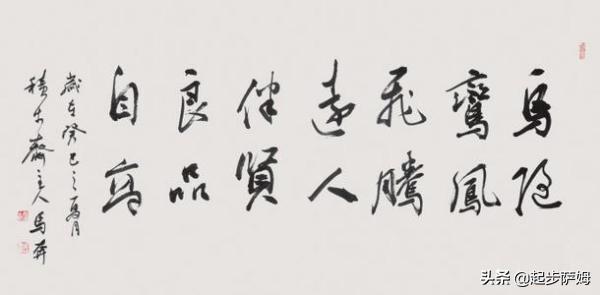 馬随
鸞鳳
飛騰
遠人
伴賢
良品
自高
歲在癸巳之夏月
積 齋主人馬奔
头条 @起步萨姆